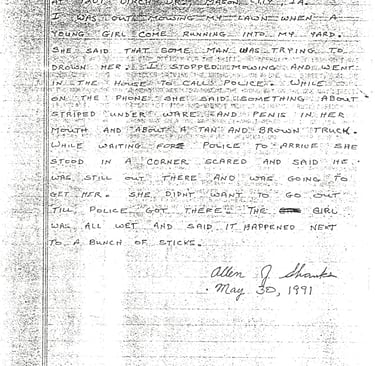 AT 1201 BIRCH DR., MASON CITY, IA.
I WAS OUT MOWING MY LAWN WHEN A
YOUNG GIRL COME RUNNING INTO MY YARD.
SHE SAID THAT SOME MAN WAS TRYING TO
DROWN HER. I STOPPED MOWING AND WENT
IN THE HOUSE TO CALL POLICE. WHILE
ON THE PHONE SHE SAID SOMETHING ABOUT
STRIPED UNDER WARE AND PENIS IN HER
MOUTH AND ABOUT A TAN AND BROWN TRUCK.
WHILE WAITING FOR POLICE TO ARRIVE SHE
STOOD IN A CORNER SCARED AND SAID HE
WAS STILL OUT THERE AND WAS GOING TO
GET HER. SHE DIDNT WANT TO GO OUT
TILL POLICE GOT THERE. THE GIRL
WAS ALL WET AND SAID IT HAPPENED NEXT
TO A BUNCH OF STICKS.
Allen J.
May 30, 1991